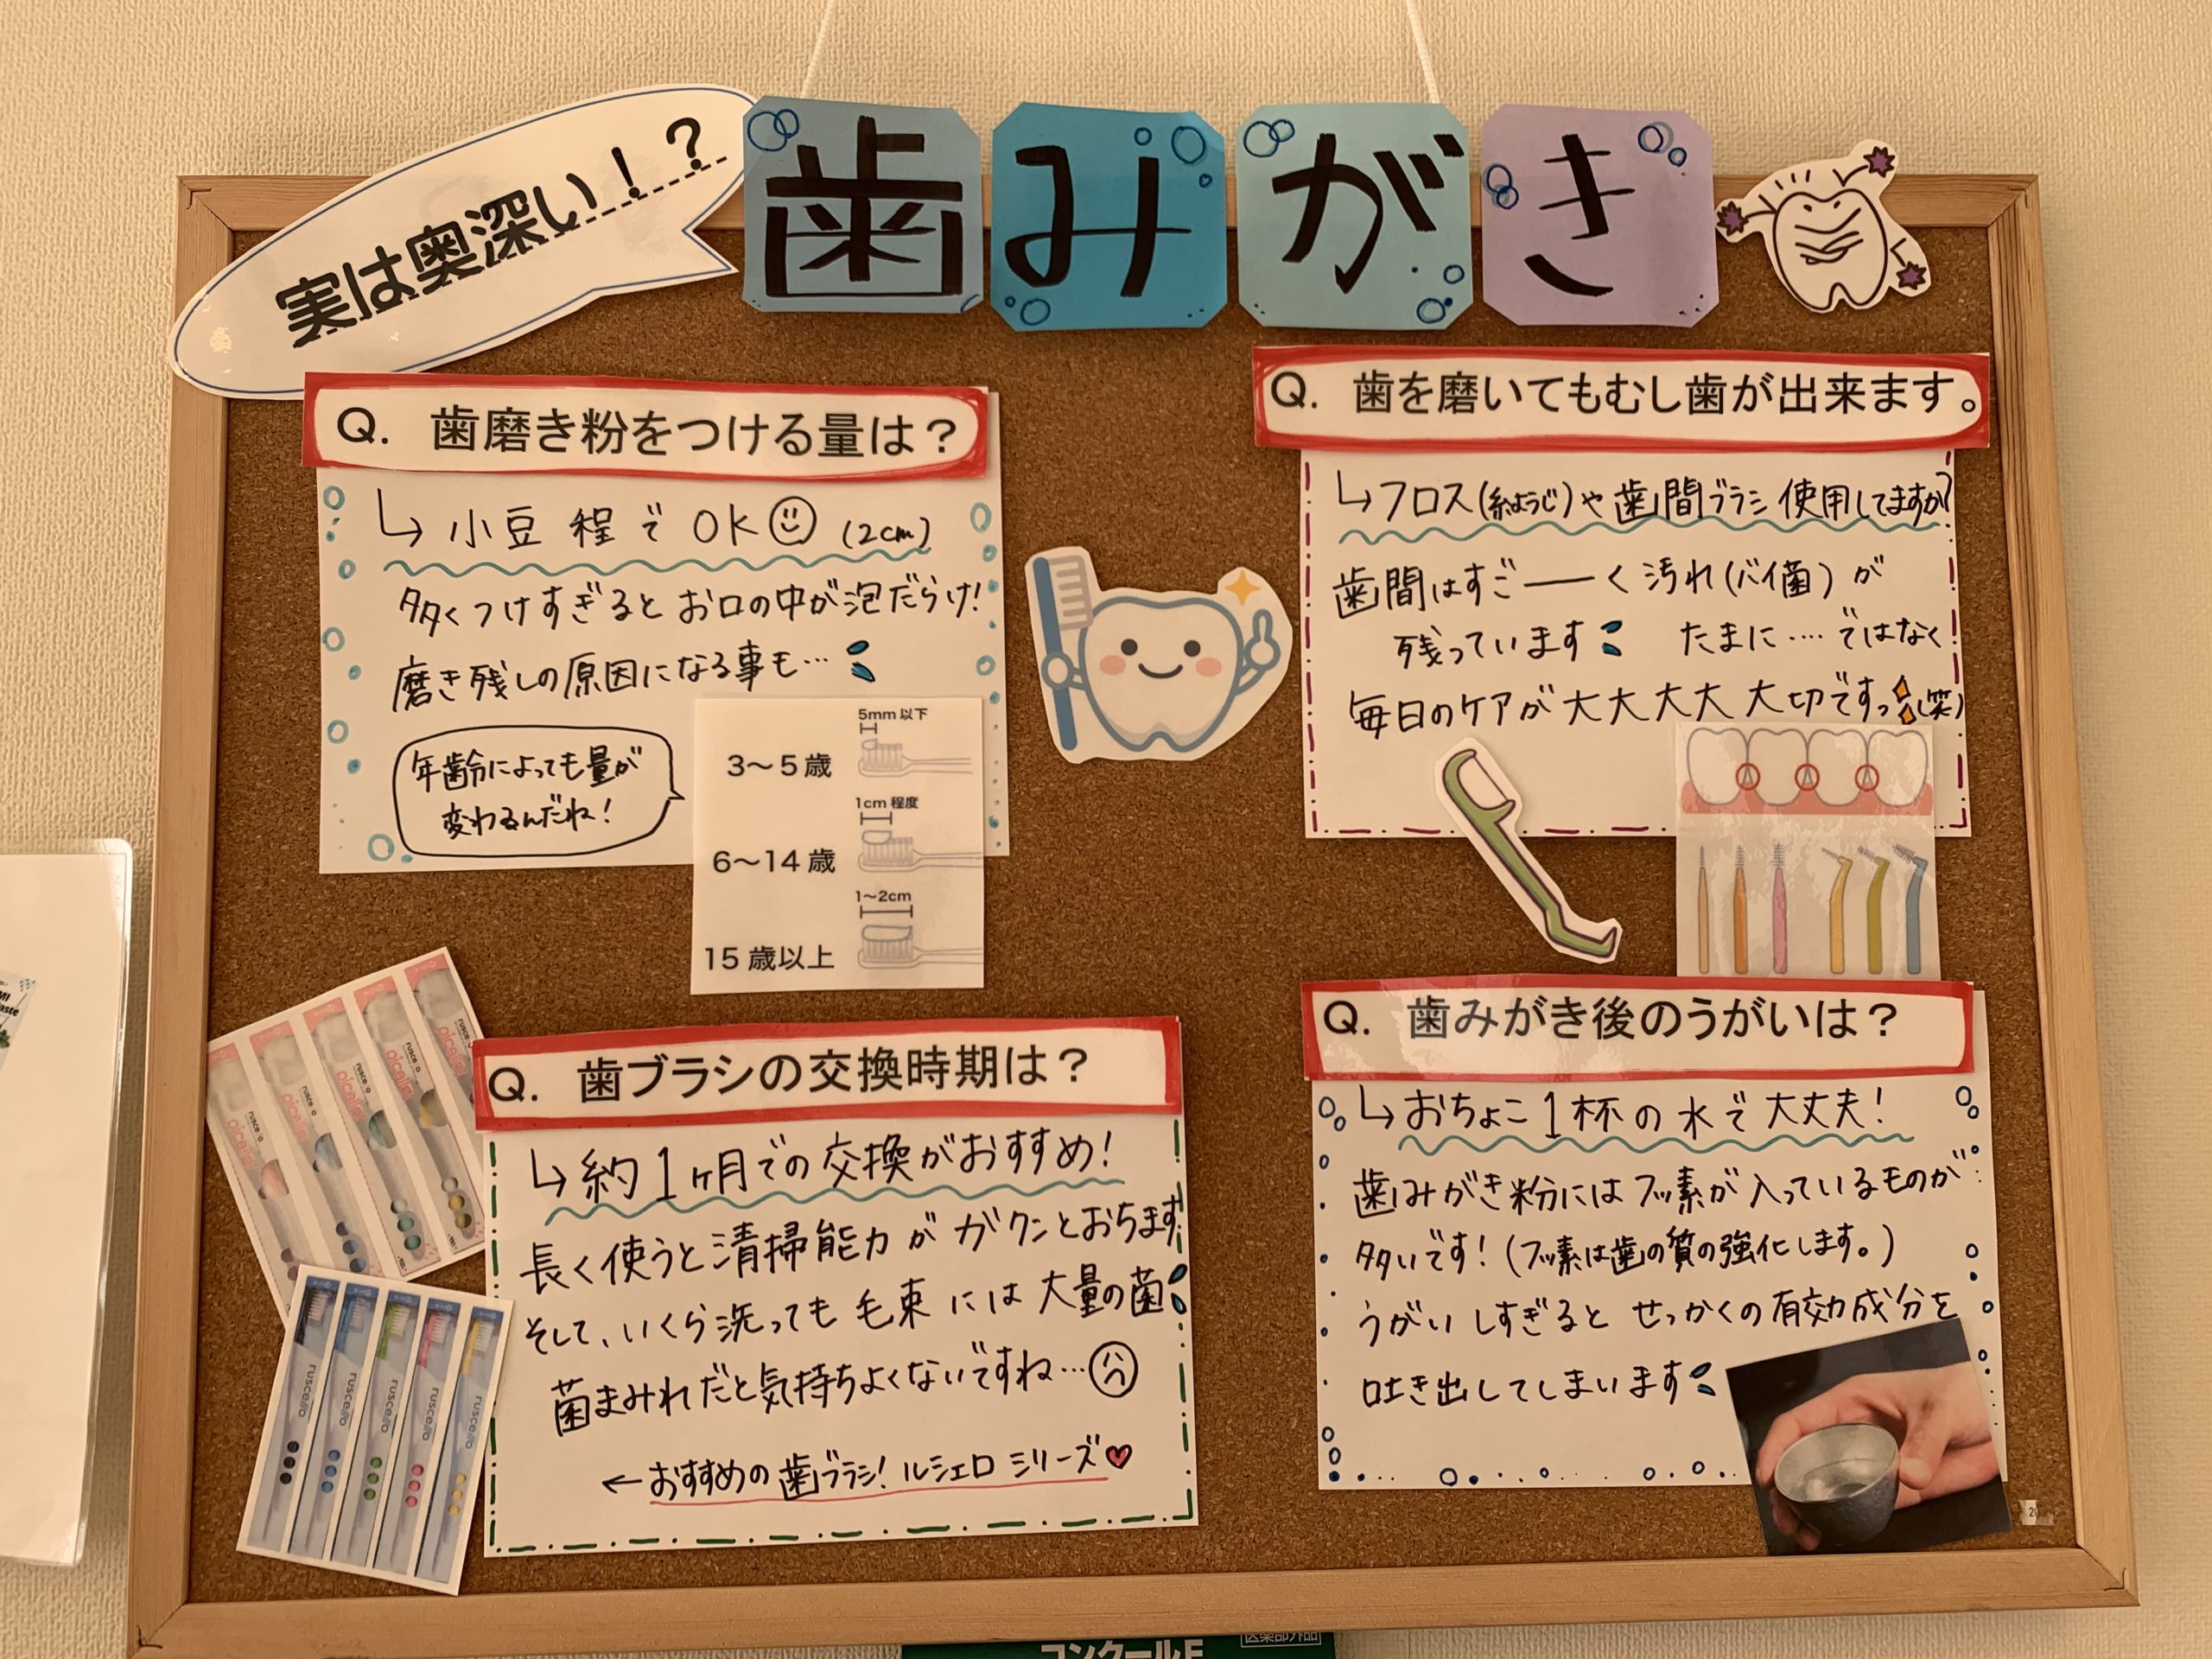 実は奥深い！？
歯みがき
Q. 歯磨き粉をつける量は？
↳小豆程でOK (2cm)
多くつけすぎるとお口の中が泡だらけ!
磨き残しの原因になる事も…
年齢によっても量が
変わるんだね!
5mm以下
3〜5歳
1cm程度
6〜14歳
1〜2cm
15歳以上
Q. 歯を磨いてもむし歯が出来ます。
↳フロス(糸ようじ)や歯間ブラシ使用してますか?
歯間はすご――く汚れ(バイ菌)が
残っています たまに‥‥ではなく
毎日のケアが大大大大大切ですっ(笑)
Q. 歯ブラシの交換時期は？
↳約1ヶ月での交換がおすすめ!
長く使うと清掃能力がガクンとおちます
そして、いくら洗っても毛束には大量の菌
菌まみれだと気持ちよくないですね…
←おすすめの歯ブラシ! ルシェロシリーズ
ruscello
ruscello
ruscello
ruscello
ruscello
Q. 歯みがき後のうがいは？
↳おちょこ1杯の水で大丈夫!
歯みがき粉にはフッ素が入っているものが
多いです! (フッ素は歯の質の強化します。)
うがいしすぎるとせっかくの有効成分を
吐き出してしまいます
コンクールF
医薬部外品